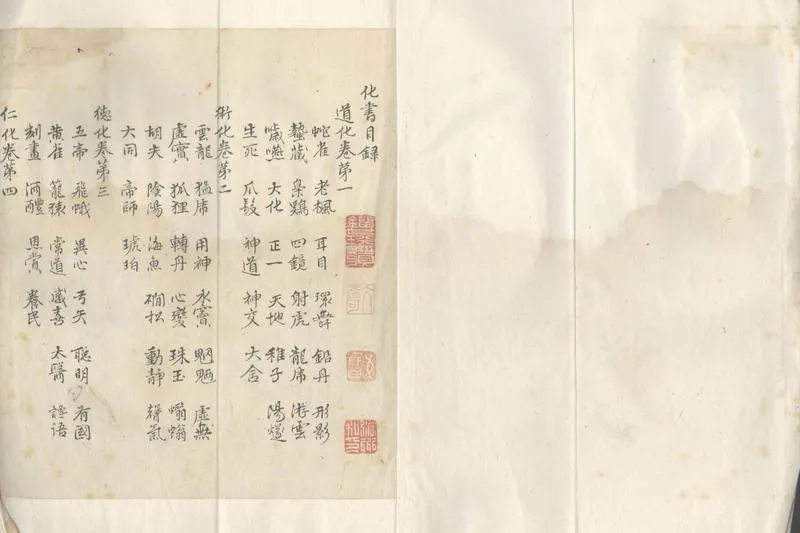 化書目録
道化卷第一
蛇雀 老楓 耳目 環舞 鉛丹 形影
蟄藏 梟鷄 四鏡 射虎 龍虎 游雲
噦嚥 大化 正一 天地 稚子 陽燧
生死 爪髮 神道 神交 大含
術化卷第二
雲龍 猛虎 用神 水竇 魍魎 虛無
虛實 狐狸 轉舟 心變 珠玉
胡夫 陰陽 海魚 澗松 動靜 聲氣
大同 帝師 琥珀
德化卷第三
五帝 飛蛾 異心 弓矢 聰明 有國
黃雀 籠猿 常道 感喜 太醫 讒語
刻畫 酒醴 恩賞 養民
仁化卷第四